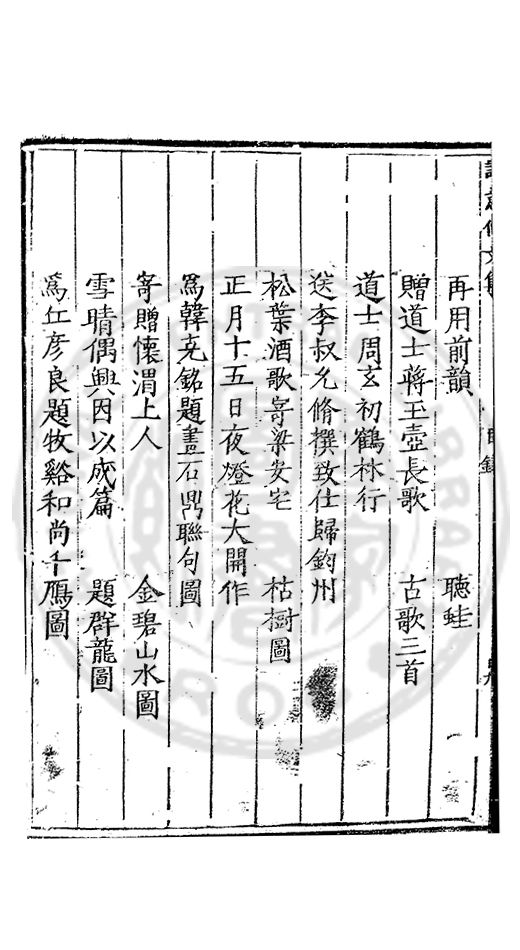 再用前韻 聽蛙
贈道士蔣玉壺長歌 古歌三首
道士周玄初鶴林行
送李叔允脩撰致仕歸鈞州
松葉酒歌寄梁安宅 枯樹圖
正月十五日夜燈花大開作
爲韓克銘題畫石鼎聯句圖
寄贈懷渭上人 金碧山水圖
雪晴偶興因以成篇 題群龍圖
爲丘彦良題牧谿和尚千鴈圖